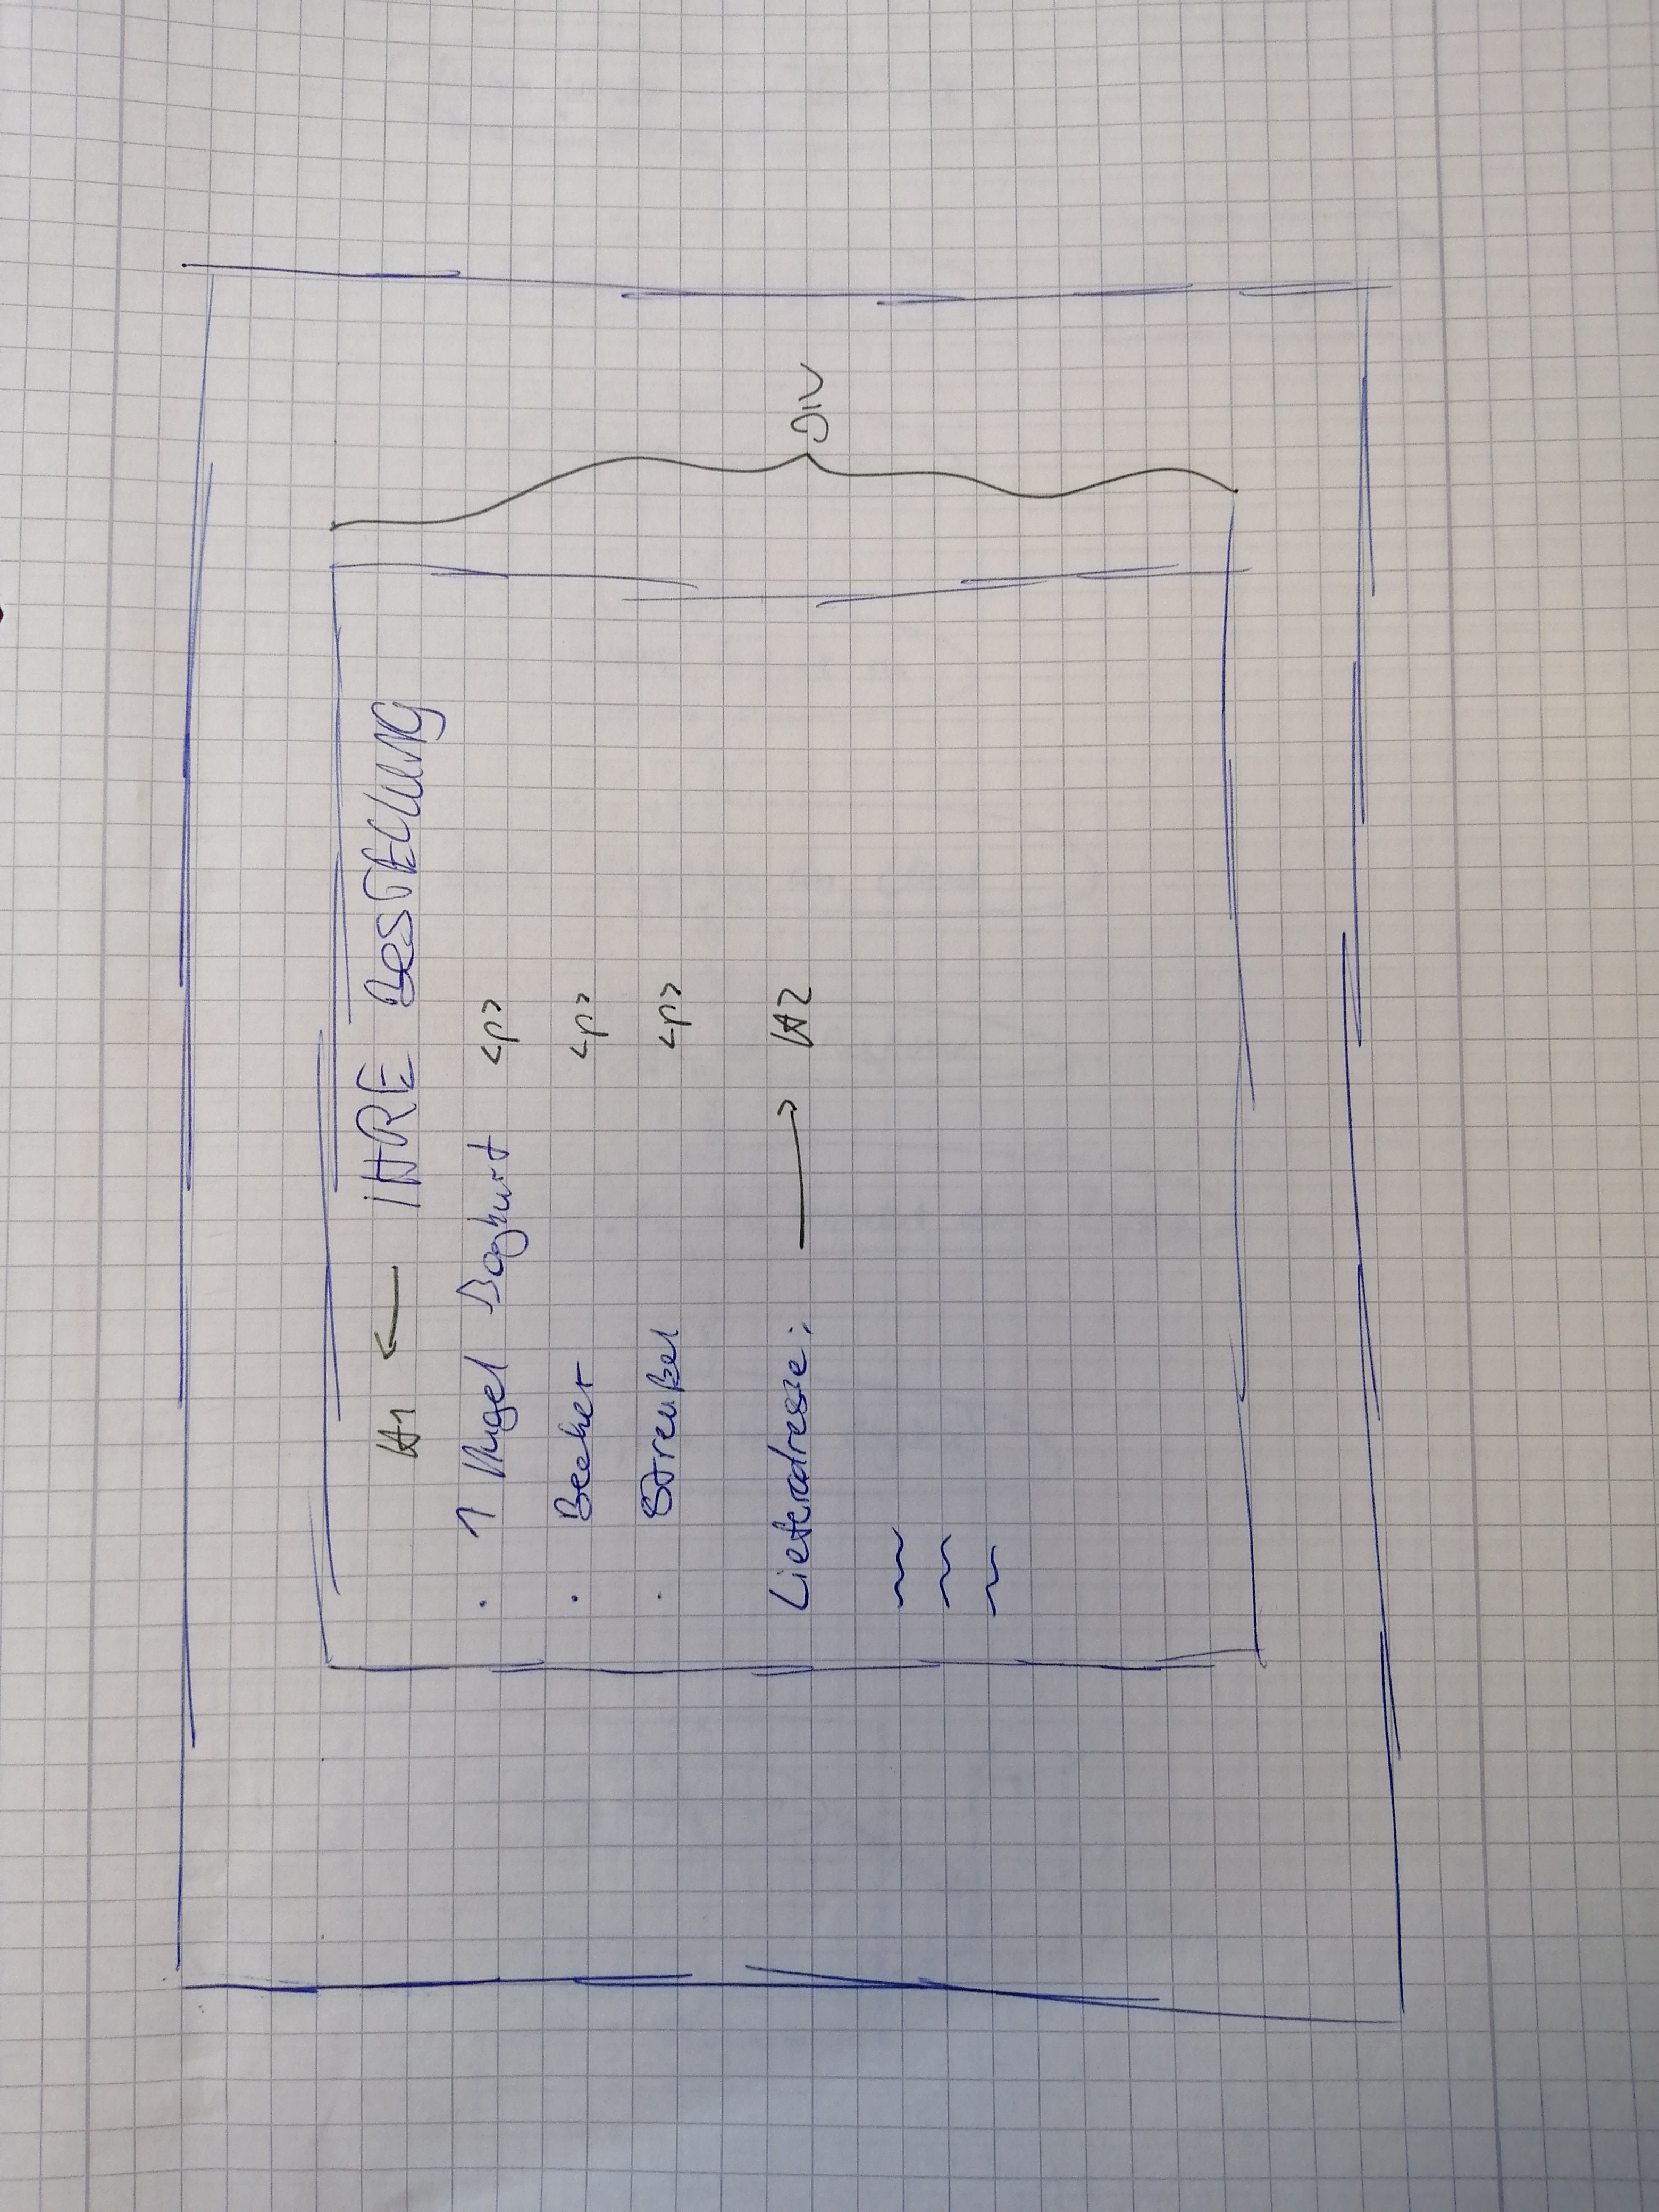 H1 ← IHRE BESTELLUNG
· 1 Kugel Joghurt <p>
· Becher <p>
· Streußel <p>
Lieferadresse: → H2
DIV